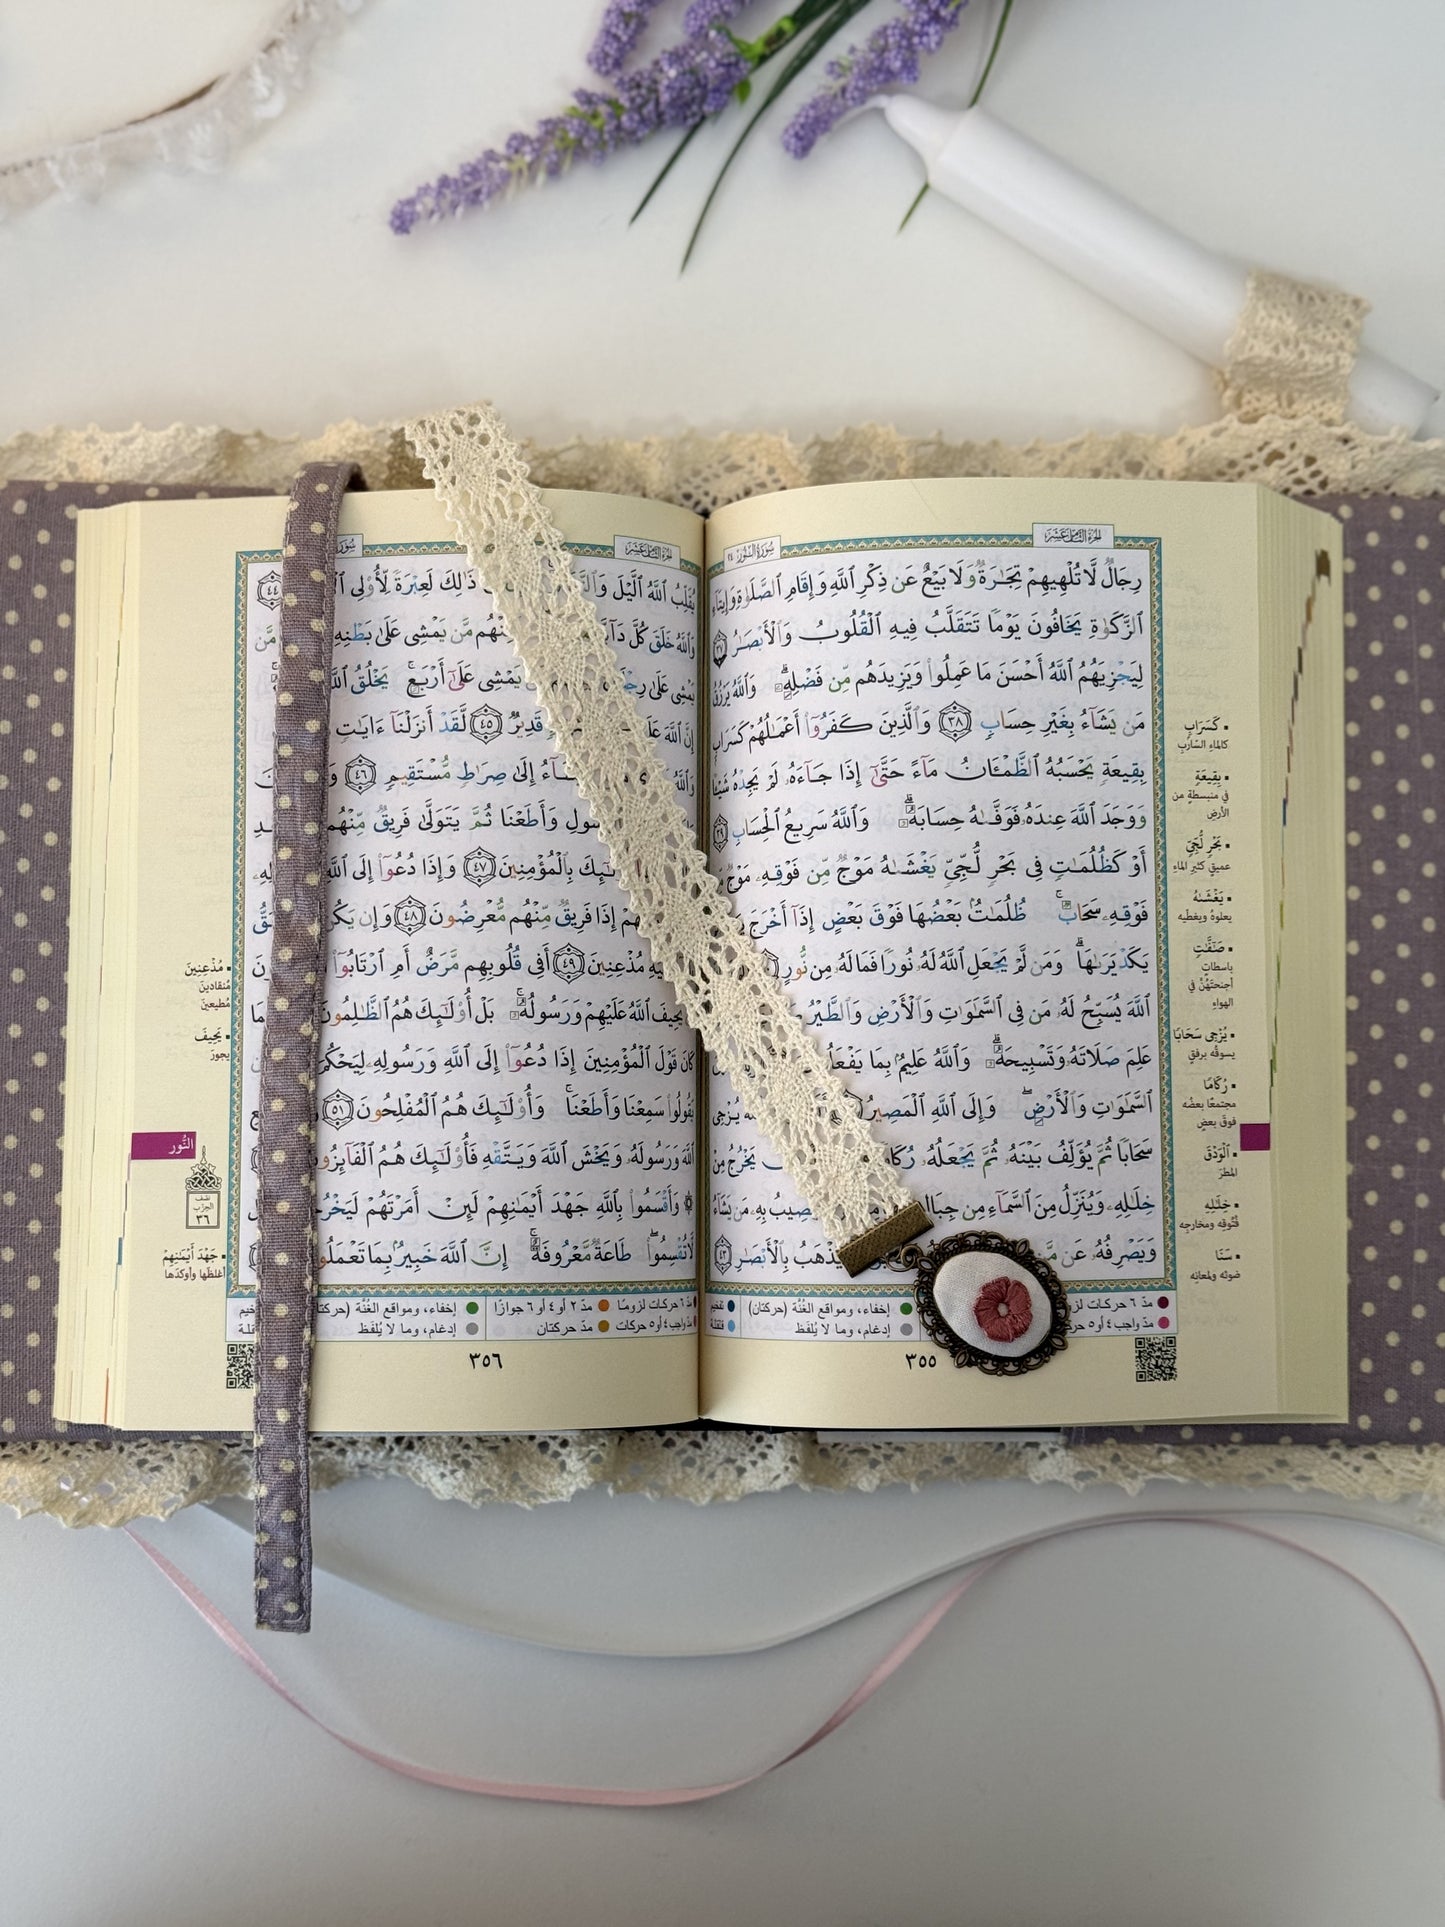 سُورَةُ النُّورِ ٢٤
الجُزءُ الثَّامِنَ عَشَرَ
رِجَالٌ لَّا تُلْهِيهِمْ تِجَـٰرَةٌ وَلَا بَيْعٌ عَن ذِكْرِ ٱللَّهِ وَإِقَامِ ٱلصَّلَوٰةِ وَإِيتَآءِ
ٱلزَّكَوٰةِ يَخَافُونَ يَوْمًا تَتَقَلَّبُ فِيهِ ٱلْقُلُوبُ وَٱلْأَبْصَـٰرُ ٣٧
لِيَجْزِيَهُمُ ٱللَّهُ أَحْسَنَ مَا عَمِلُوا۟ وَيَزِيدَهُم مِّن فَضْلِهِۦ ۗ وَٱللَّهُ يَرْزُقُ
مَن يَشَآءُ بِغَيْرِ حِسَابٍ ٣٨ وَٱلَّذِينَ كَفَرُوٓا۟ أَعْمَـٰلُهُمْ كَسَرَابٍۭ
بِقِيعَةٍ يَحْسَبُهُ ٱلظَّمْـَٔانُ مَآءً حَتَّىٰٓ إِذَا جَآءَهُۥ لَمْ يَجِدْهُ شَيْـًٔا
وَوَجَدَ ٱللَّهَ عِندَهُۥ فَوَفَّىٰهُ حِسَابَهُۥ ۗ وَٱللَّهُ سَرِيعُ ٱلْحِسَابِ ٣٩
أَوْ كَظُلُمَـٰتٍ فِى بَحْرٍ لُّجِّىٍّ يَغْشَىٰهُ مَوْجٌ مِّن فَوْقِهِۦ مَوْجٌ
فَوْقِهِۦ سَحَابٌ ۚ ظُلُمَـٰتٌۢ بَعْضُهَا فَوْقَ بَعْضٍ إِذَآ أَخْرَجَ
يَكَدْ يَرَىٰهَا ۗ وَمَن لَّمْ يَجْعَلِ ٱللَّهُ لَهُۥ نُورًا فَمَا لَهُۥ مِن نُّورٍ
ٱللَّهَ يُسَبِّحُ لَهُۥ مَن فِى ٱلسَّمَـٰوَٰتِ وَٱلْأَرْضِ وَٱلطَّيْرُ
عَلِمَ صَلَاتَهُۥ وَتَسْبِيحَهُۥ ۗ وَٱللَّهُ عَلِيمٌۢ بِمَا يَفْعَلُونَ
ٱلسَّمَـٰوَٰتِ وَٱلْأَرْضِ ۖ وَإِلَى ٱللَّهِ ٱلْمَصِيرُ يُزْجِى
سَحَابًا ثُمَّ يُؤَلِّفُ بَيْنَهُۥ ثُمَّ يَجْعَلُهُۥ رُكَامًا يَخْرُجُ مِنْ
خِلَـٰلِهِۦ وَيُنَزِّلُ مِنَ ٱلسَّمَآءِ مِن جِبَالٍ فَيُصِيبُ بِهِۦ مَن يَشَآءُ
وَيَصْرِفُهُۥ عَن مَّن يَذْهَبُ بِٱلْأَبْصَـٰرِ ٤٣
كَسَرَابٍ
كالماءِ السّارب
بِقِيعَةٍ
في منبسطةٍ من
الأرضِ
بَحْرٍ لُّجِّيٍّ
عميقٍ كثيرِ الماءِ
يَغْشَىٰهُ
يعلوهُ ويغطّيه
صَـٰٓفَّـٰتٍ
باسطاتٍ
أجنحتَهُنَّ في
الهواءِ
يُزْجِى سَحَابًا
يسوقُه برفقٍ
رُكَامًا
مجتمعًا بعضُه
فوقَ بعضٍ
ٱلْوَدْقَ
المطرَ
خِلَـٰلِهِ
فُتُوقِه ومخارجِه
سَنَا
ضوئه ولمعانِه
مدّ ٦ حركات لزومًا
مدّ واجب ٤ أو ٥ حركات
إخفاء، ومواقع الغُنَّة (حركتان)
إدغام، وما لا يُلفَظ
تفخيم
قلقلة
٣٥٥
الجُزءُ الثَّامِنَ عَشَرَ
سُورَةُ
يُقَلِّبُ ٱللَّهُ ٱلَّيْلَ وَٱلنَّهَارَ ذَٰلِكَ لَعِبْرَةً لِّأُو۟لِى ٤٤
وَٱللَّهُ خَلَقَ كُلَّ دَآبَّةٍ فَمِنْهُم مَّن يَمْشِى عَلَىٰ بَطْنِهِۦ مَّن
يَمْشِى عَلَىٰ رِجْلَيْنِ يَمْشِى عَلَىٰٓ أَرْبَعٍ ۚ يَخْلُقُ ٱللَّهُ
إِنَّ ٱللَّهَ عَلَىٰ قَدِيرٌ ٤٥ لَّقَدْ أَنزَلْنَآ ءَايَـٰتٍ
وَٱللَّهُ يَشَآءُ إِلَىٰ صِرَٰطٍ مُّسْتَقِيمٍ ٤٦
وَأَطَعْنَا ثُمَّ يَتَوَلَّىٰ فَرِيقٌ مِّنْهُم
بِٱلْمُؤْمِنِينَ ٤٧ وَإِذَا دُعُوٓا۟ إِلَى ٱللَّهِ
إِذَا فَرِيقٌ مِّنْهُم مُّعْرِضُونَ ٤٨ وَإِن يَكُن
مُذْعِنِينَ ٤٩ أَفِى قُلُوبِهِم مَّرَضٌ أَمِ ٱرْتَابُوٓا۟
يَحِيفَ ٱللَّهُ عَلَيْهِمْ وَرَسُولُهُۥ ۚ بَلْ أُو۟لَـٰٓئِكَ هُمُ ٱلظَّـٰلِمُونَ
كَانَ قَوْلَ ٱلْمُؤْمِنِينَ إِذَا دُعُوٓا۟ إِلَى ٱللَّهِ وَرَسُولِهِۦ لِيَحْكُمَ
يَقُولُوا۟ سَمِعْنَا وَأَطَعْنَا ۚ وَأُو۟لَـٰٓئِكَ هُمُ ٱلْمُفْلِحُونَ ٥١
ٱللَّهَ وَرَسُولَهُۥ وَيَخْشَ ٱللَّهَ وَيَتَّقْهِ فَأُو۟لَـٰٓئِكَ هُمُ ٱلْفَآئِزُونَ
۞ وَأَقْسَمُوا۟ بِٱللَّهِ جَهْدَ أَيْمَـٰنِهِمْ لَئِنْ أَمَرْتَهُمْ لَيَخْرُجُنَّ
لَّا تُقْسِمُوا۟ ۖ طَاعَةٌ مَّعْرُوفَةٌ ۚ إِنَّ ٱللَّهَ خَبِيرٌۢ بِمَا تَعْمَلُونَ
مُذْعِنِينَ
مُنقادينَ
مُطيعينَ
يَحِيفَ
يجورَ
النُّور
نصف
الحزب
٣٦
جَهْدَ أَيْمَـٰنِهِمْ
أغلظَها وأوكدَها
مدّ ٦ حركات لزومًا
مدّ ٢ أو ٤ أو ٦ جوازًا
مدّ واجب ٤ أو ٥ حركات
مدّ حركتان
إخفاء، ومواقع الغُنَّة
إدغام، وما لا يُلفَظ
٣٥٦